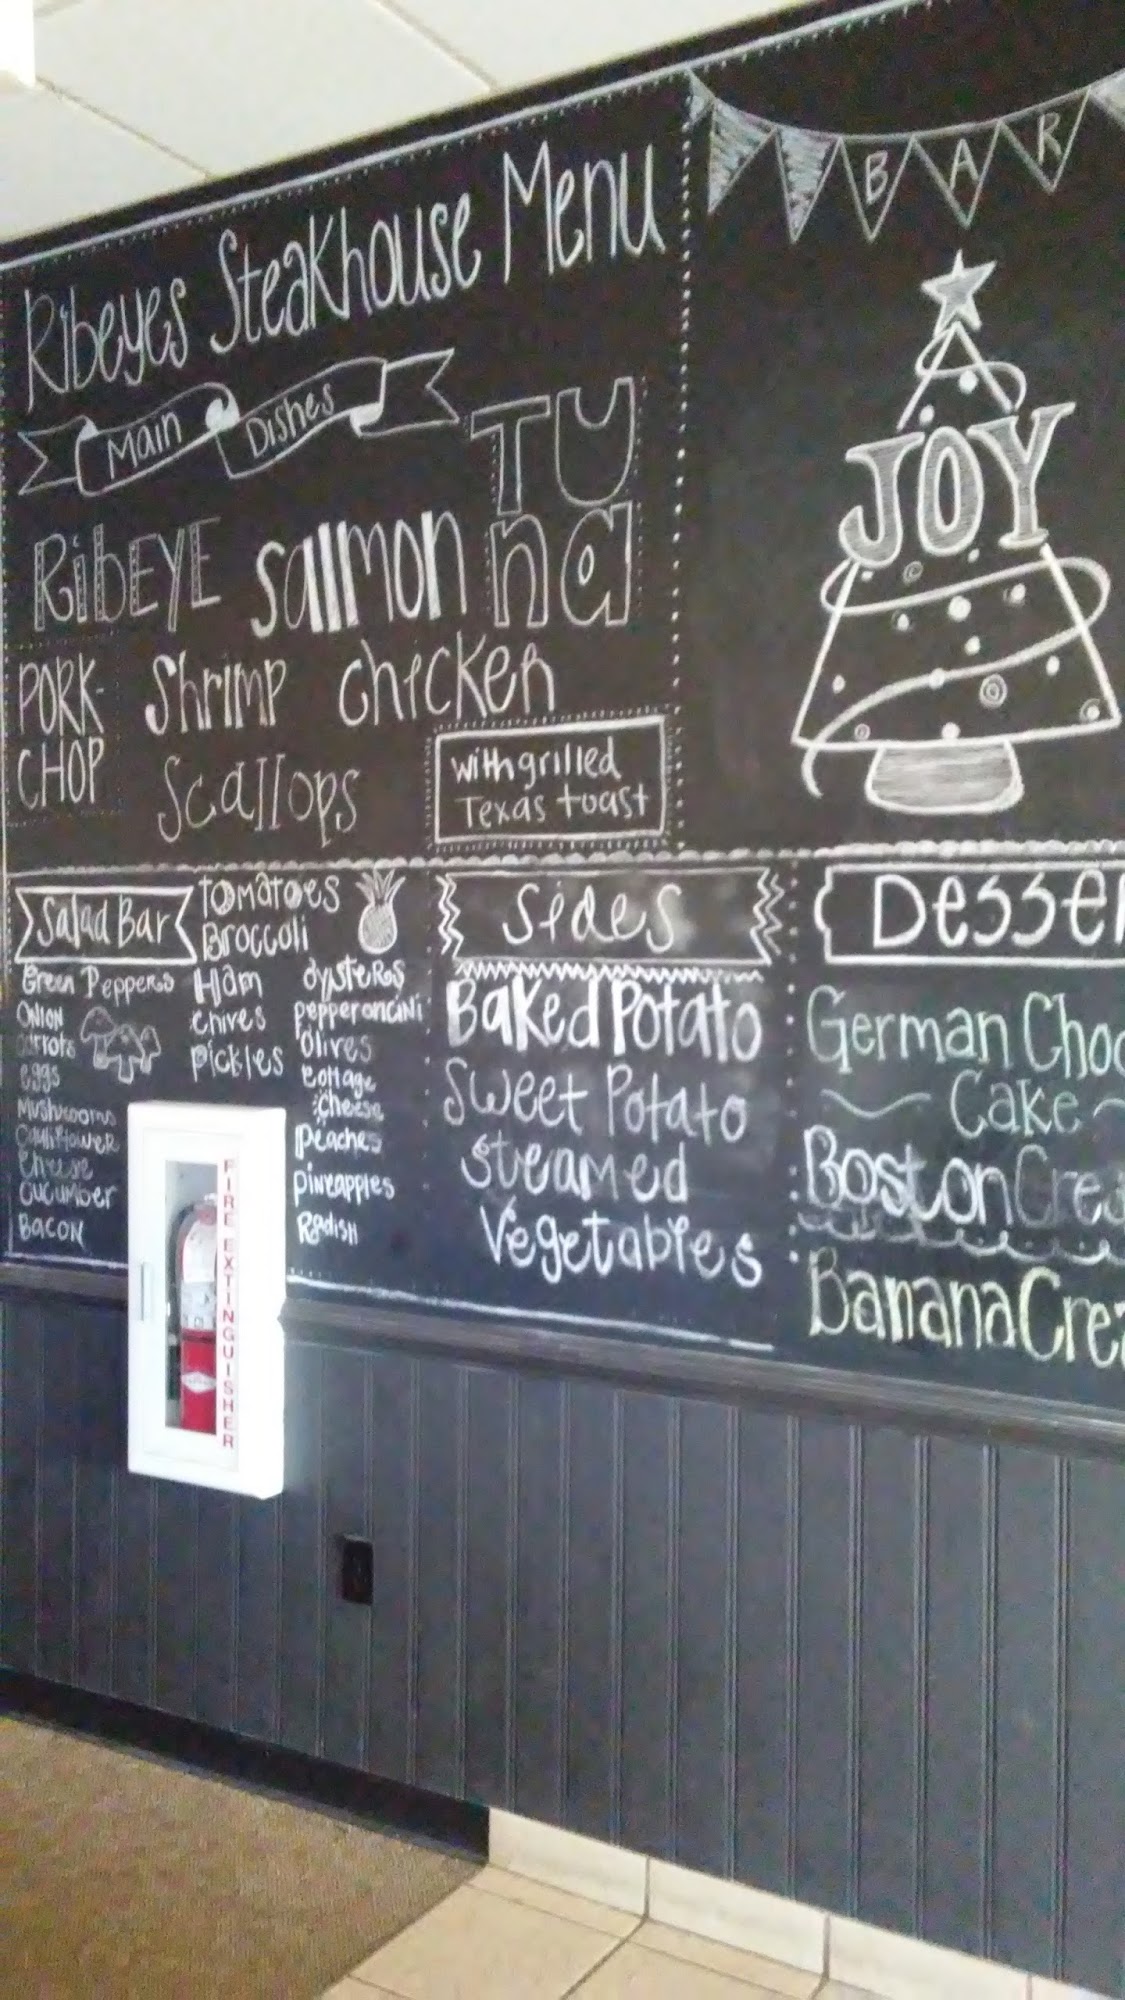 Ribeyes Steakhouse Menu
Main Dishes
TU
na
RibEYE salmon
PORK-
CHOP
Shrimp chicken
Scallops
with grilled
Texas toast
BAR
JOY
Salad Bar
Green Peppers
Onion
carrots
eggs
Mushrooms
Cauliflower
Cheese
cucumber
Bacon
Tomatoes
Broccoli
Ham
chives
pickles
oysters
pepperoncini
Olives
cottage
cheese
Peaches
pineapples
Radish
Sides
Baked Potato
Sweet Potato
Steamed
Vegetables
Desser
German Choc
Cake
Boston Crea
Banana Crea
FIRE EXTINGUISHER